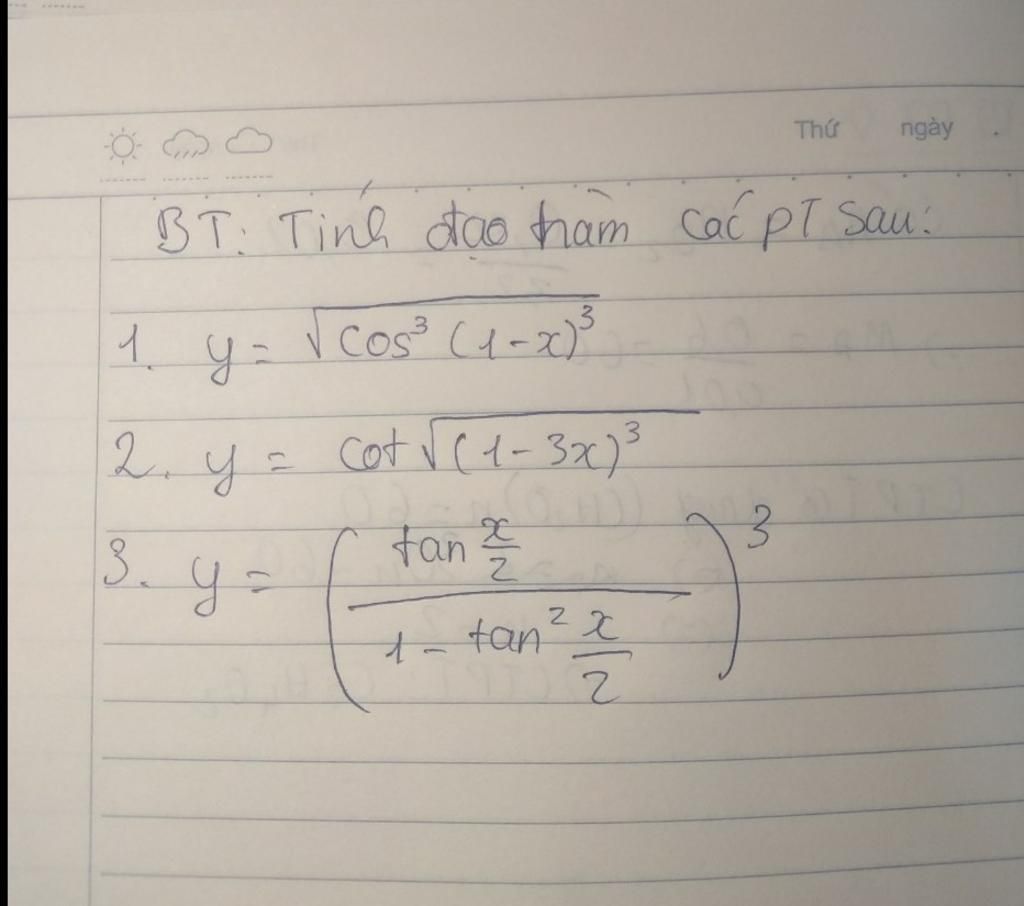 Thứ ngày .
BT: Tính đạo hàm các PT sau:
1. y = √(cos³ (1-x)³)
2. y = cot √((1-3x)³)
3. y = ( (tan x/2) / (1 - tan² x/2) )³